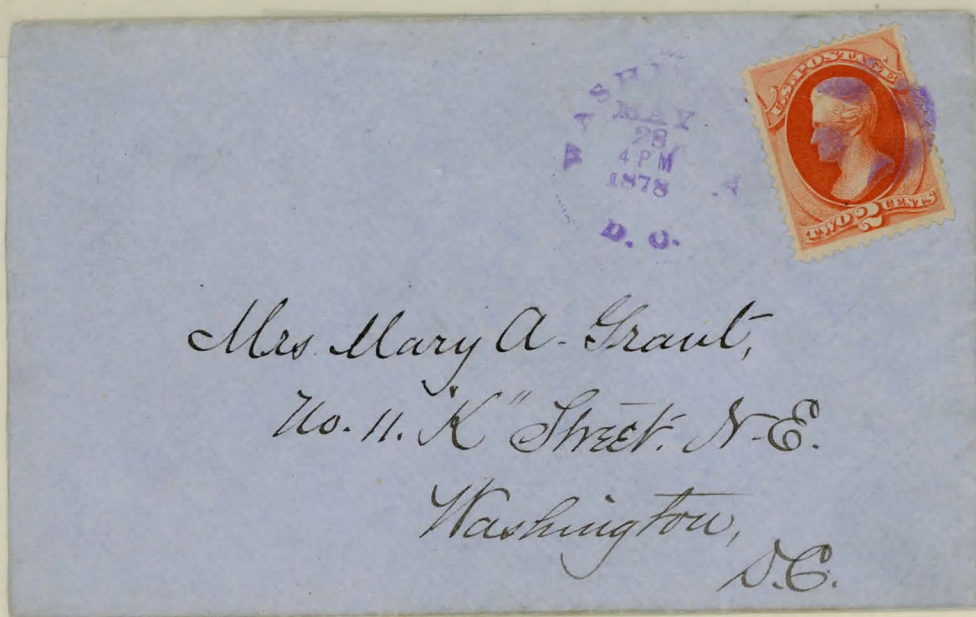 WASHIN
MAY
28
4 PM
1878
D. C.
U.S. POSTAGE
TWO 2 CENTS
Mrs Mary A. Grant,
No. 11. "K" Street. N-E.
Washington,
D.C.